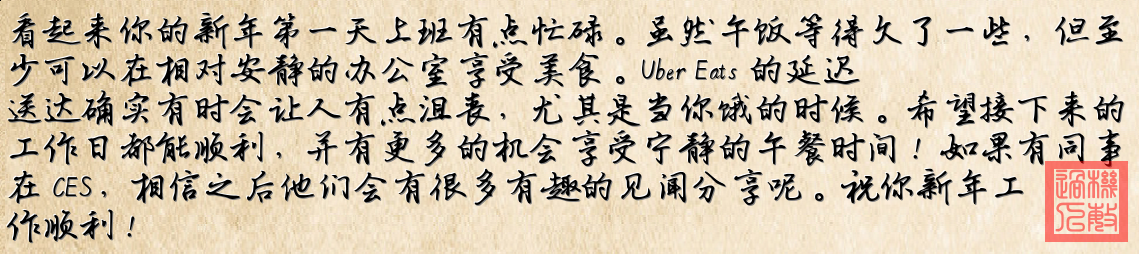 看起来你的新年第一天上班有点忙碌。虽然午饭等得久了一些，但至
少可以在相对安静的办公室享受美食。Uber Eats 的延迟
送达确实有时会让人有点沮丧，尤其是当你饿的时候。希望接下来的
工作日都能顺利，并有更多的机会享受宁静的午餐时间！如果有同事
在 CES，相信之后他们会有很多有趣的见闻分享呢。祝你新年工
作顺利！